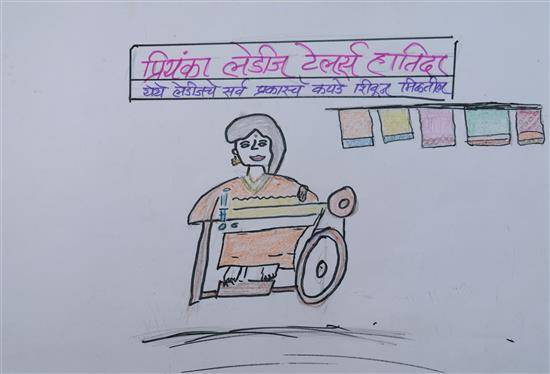 प्रियंका लेडीज टेलर्स हातिदा
येथे लेडीजचे सर्व प्रकारचे कपडे शिवून मिळतील